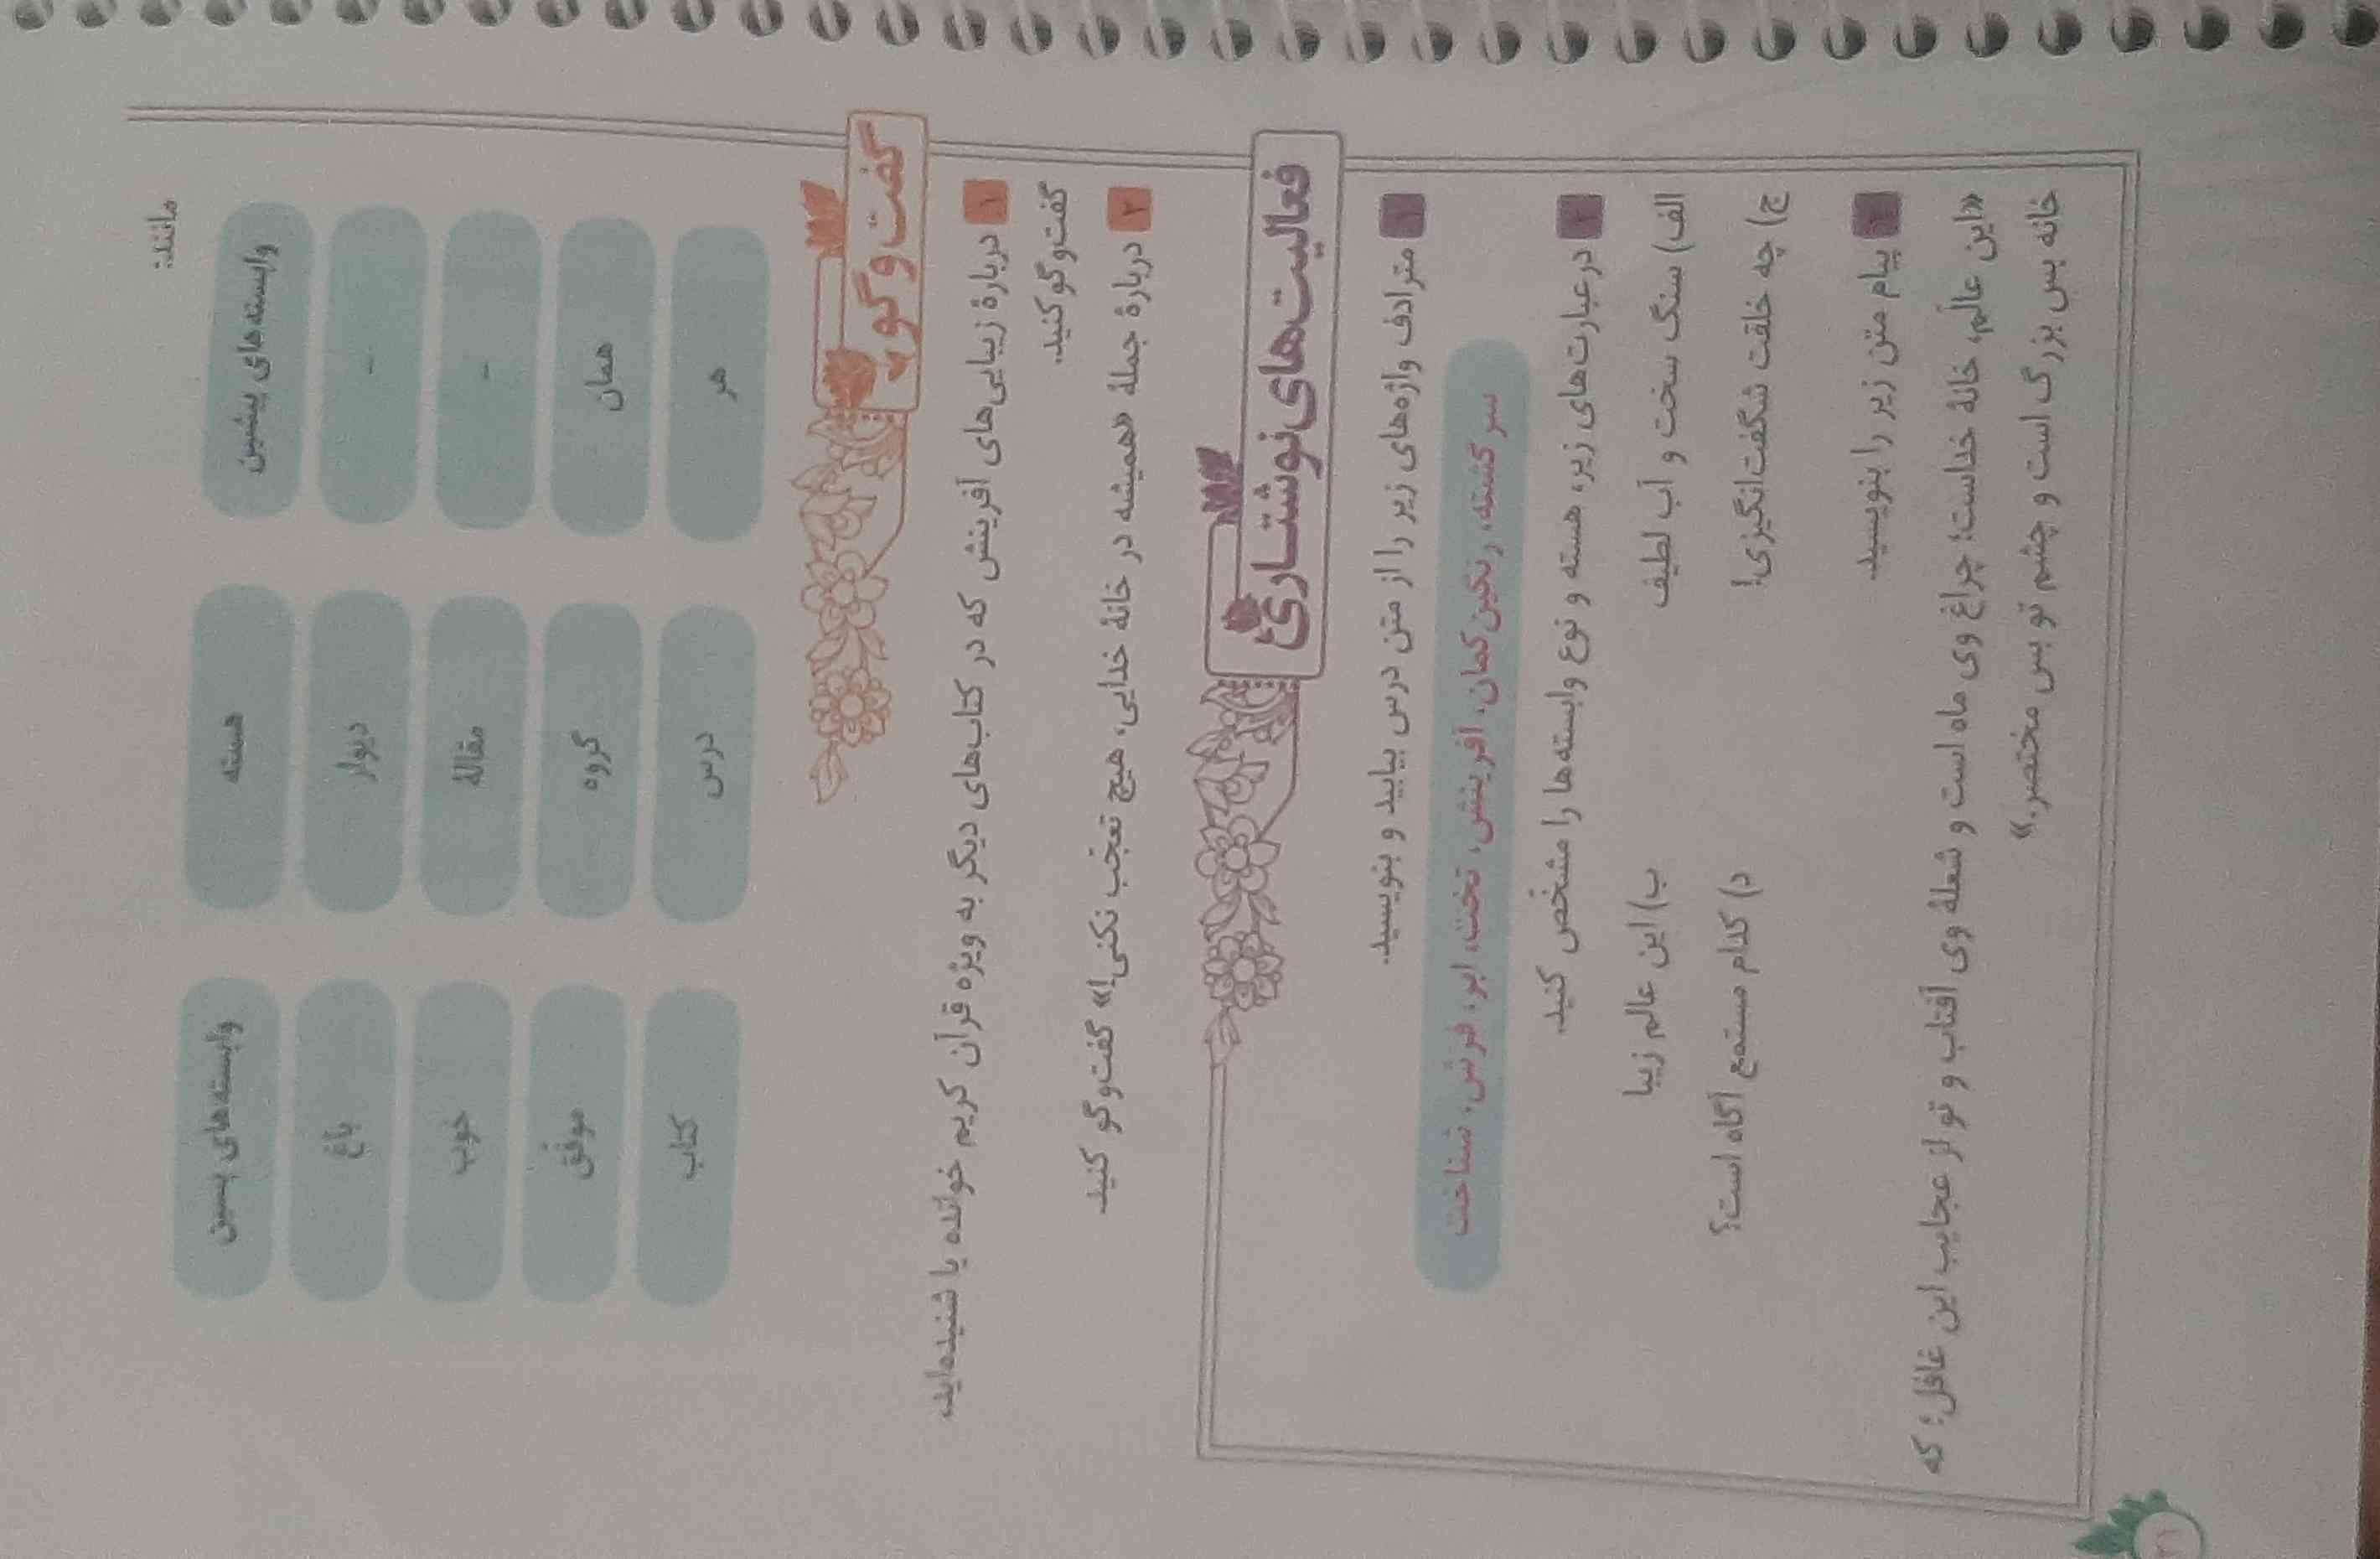 مانند:
وابسته‌های پیشین هسته وابسته‌های پسین
- دیوار باغ
- مقالهٔ خوب
همان گروه موفق
هر درس کتاب
گفت‌وگو
۱ دربارهٔ زیبایی‌های آفرینش که در کتاب‌های دیگر به ویژه قرآن کریم خوانده یا شنیده‌اید،
گفت‌وگو کنید.
۲ دربارهٔ جملهٔ «همیشه در خانهٔ خدایی، هیچ تعجّب نکنی!» گفت‌وگو کنید.
فعالیت‌های نوشتاری
۱ مترادف واژه‌های زیر را از متن درس بیابید و بنویسید.
سرگشته، رنگین‌کمان، آفرینش، تخت، ابر، فرش، شناخت
۲ در عبارت‌های زیر، هسته و نوع وابسته‌ها را مشخّص کنید.
الف) سنگ سخت و آب لطیف ب) این عالم زیبا
ج) چه خلقت شگفت‌انگیزی! د) کدام مستمع آگاه است؟
۳ پیام متن زیر را بنویسید.
«این عالَم، خانهٔ خداست؛ چراغ وی ماه است و شعلهٔ وی آفتاب و تو از عجایب این غافل؛ که
خانه بس بزرگ است و چشم تو بس مختصر.»